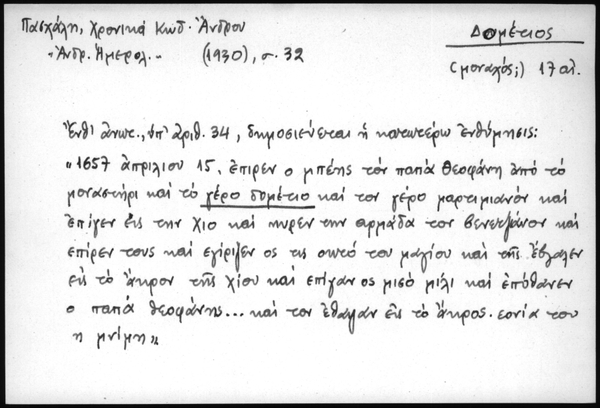 Πασχάλη, Χρονικά Κώδ. Άνδρου
Δομέτιος
"Ἀνδρ. Ἡμερολ." (1930), σ. 32
(μοναχός;) 17 αἰ.
Ἔνθ' ἀνωτ., ὑπ' ἀριθ. 34, δημοσιεύεται ἡ κατωτέρω ἐνθύμησις:
"1657 ἀπριλιου 15. ἐπιρεν ο μπέης τον παπά Θεοφάνη ἀπό το
μοναστήρι και το γέρο δομέτιο και τον γέρο μαρτιμιανόν και
ἐπίγεν εἰς την Χιο και πυρεν την αρμάδα τον βενετζάνον και
ἐπίρεν τους και εγίριζεν ος τις οκτό του μαγίου και τῆς ἔβγαλεν
εἰς το ἄκρον τῆς Χίου και ἐπίγαν ος μισό μίλι και ἐπόθανεν
ο παπά θεοφάνης... και τον ἐθαψαν εἰς το ἄκρος. εονία του
η μνίμη"